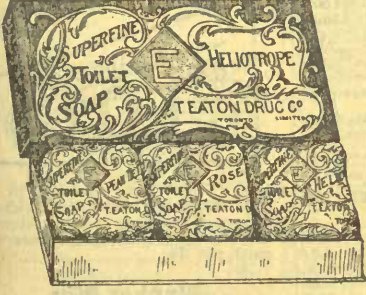 SUPERFINE
TOILET
SOAP
E
HELIOTROPE
T EATON DRUG Co
TORONTO LIMITED
SUPERFINE
TOILET
SOAP
E
T.EATON D
SUPERFINE
TOILET
SOAP
E
ROSE
T.EATON D
TORON
SUPERFINE
TOILET
SOAP
E
HELI
T.EATON